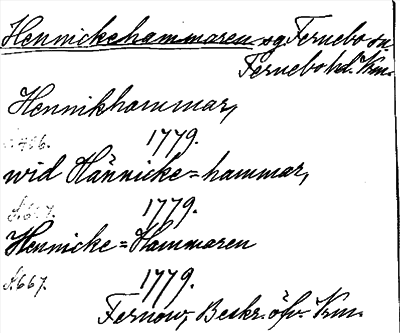 Hennickehammaren sg Fernebo sn
Fernebo hd. Vrm.
Hennikhammar,
S. 466. 1779.
wid Hännicke=hammar,
S. 667. 1779.
Hennicke=Hammaren
S. 667. 1779.
Fernow, Beskr. öfv. Vrm.